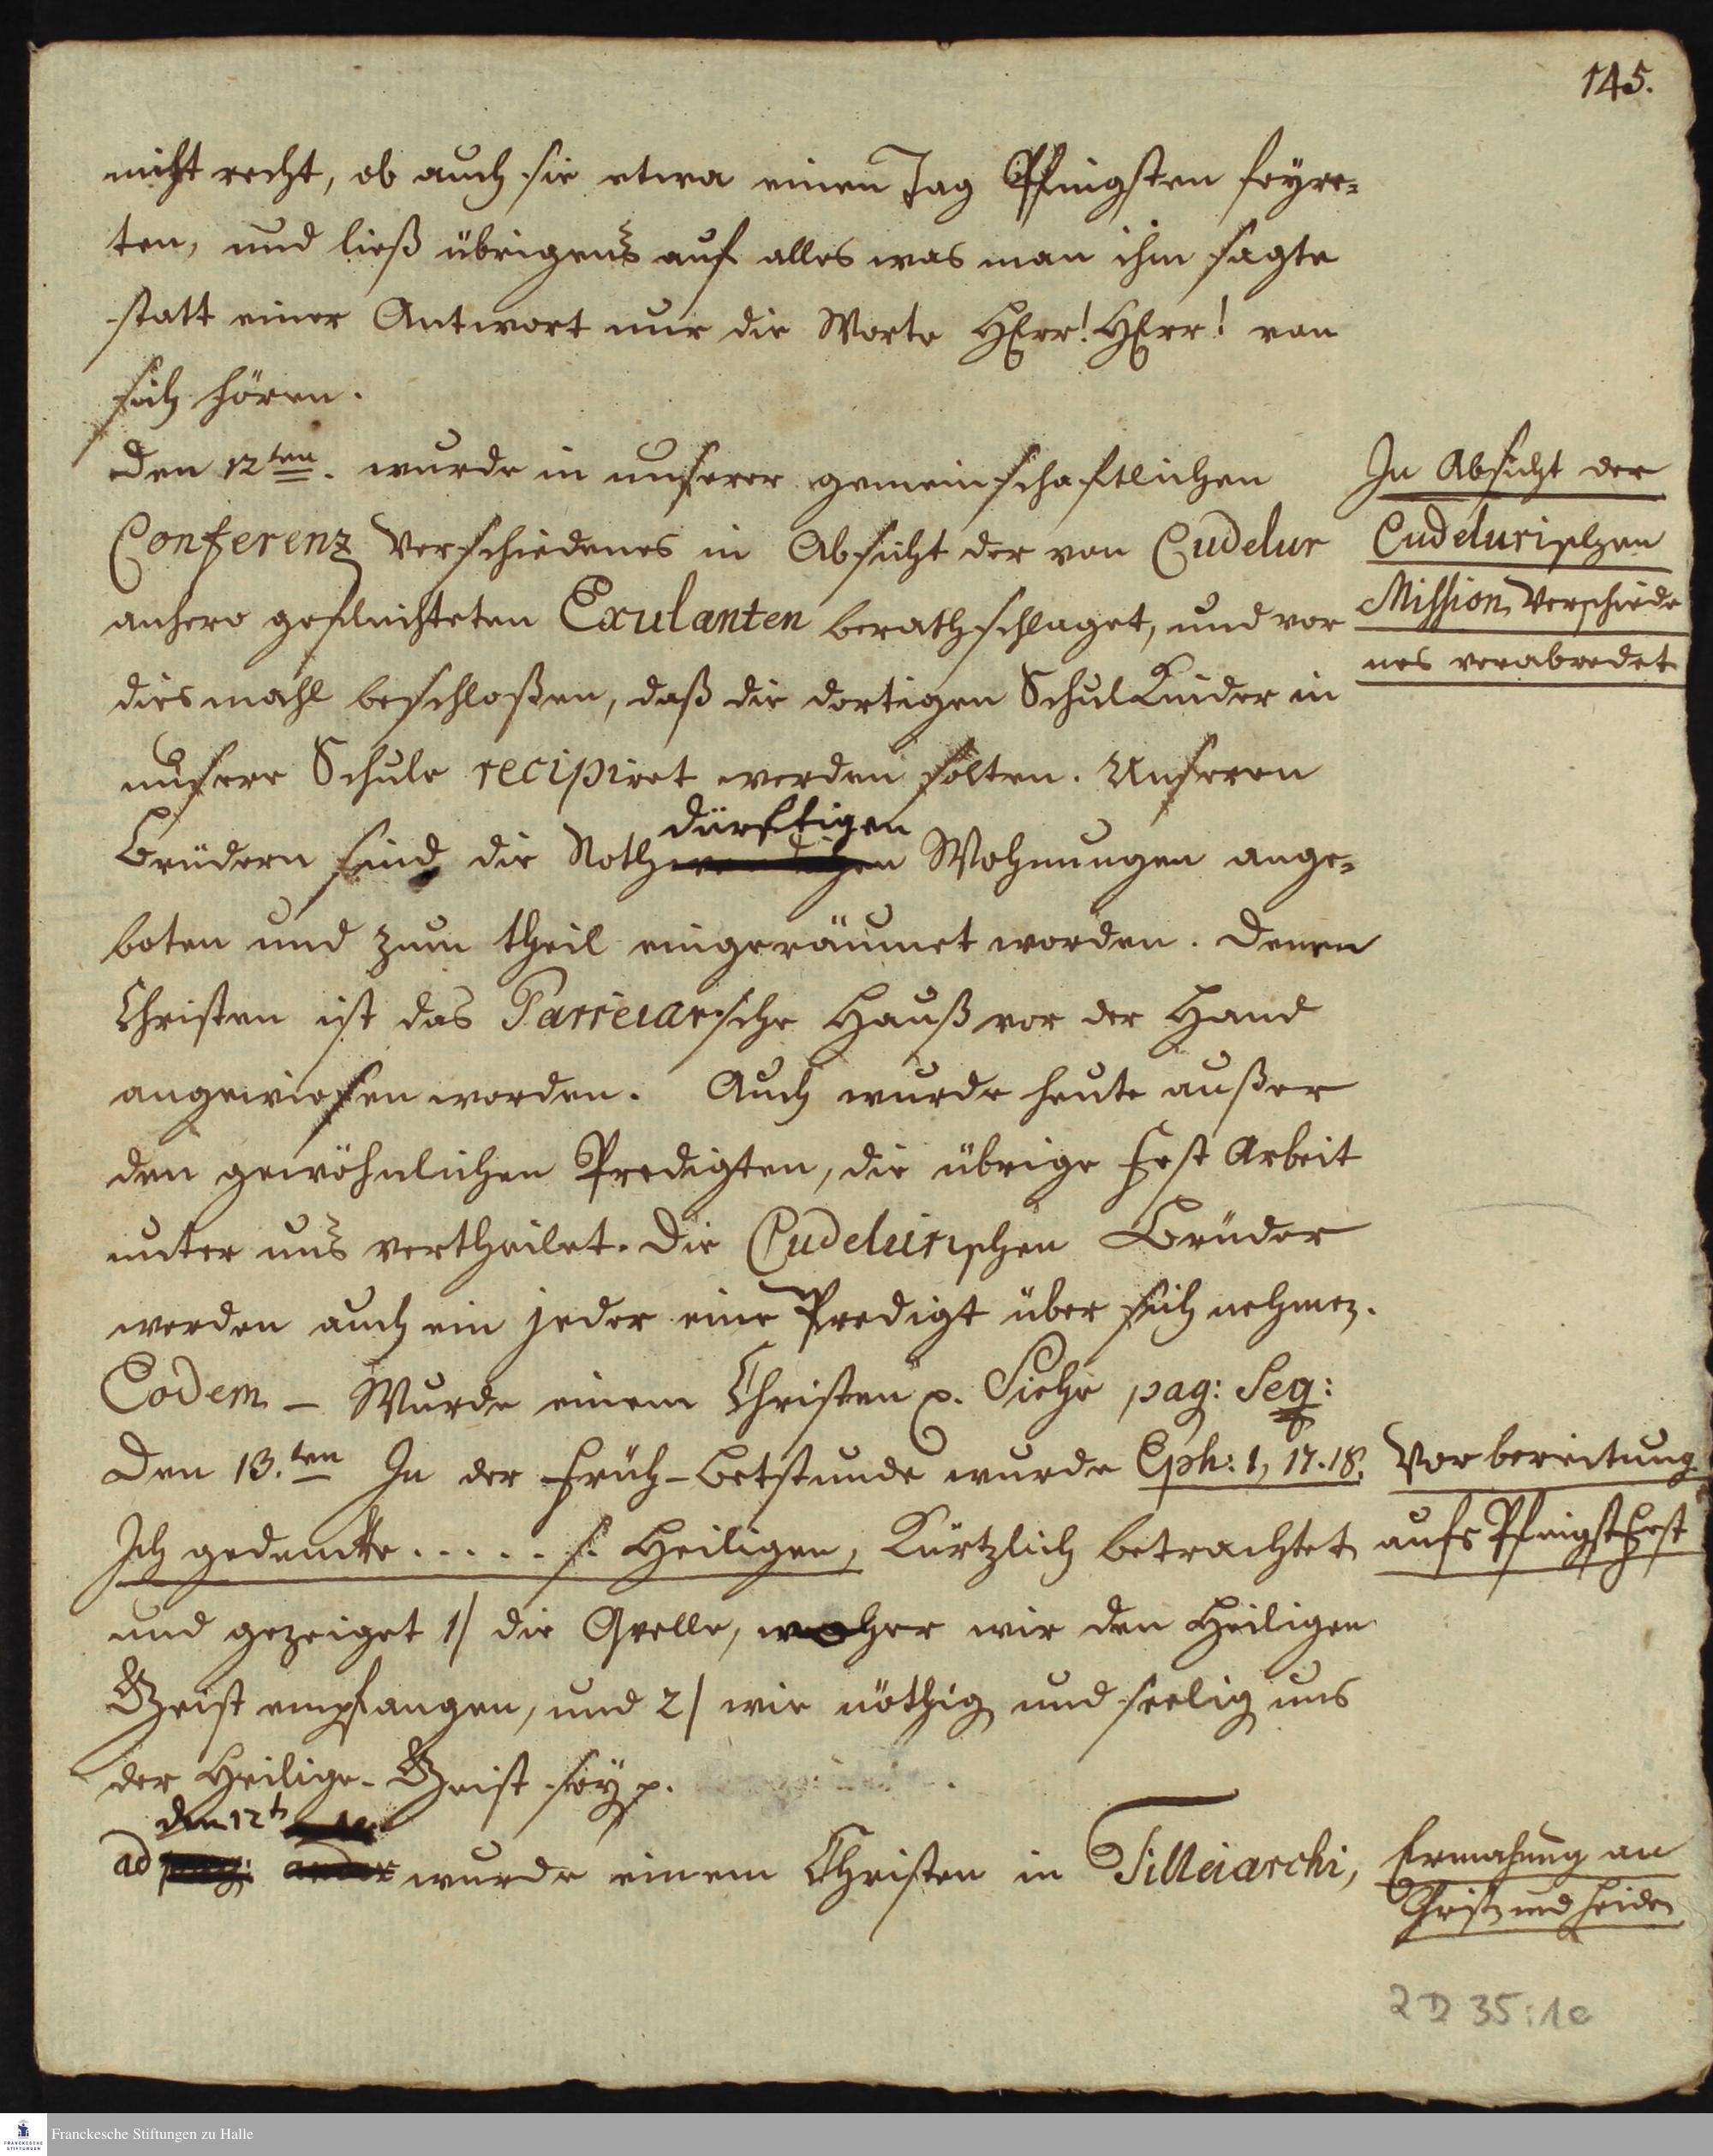 145.
nicht recht, ob auch sie etwa einen Tag Pfingsten feyre-
ten, und ließ übrigens auf alles was man ihm sagte
statt einer Antwort nur die Worte HErr! HErr! von
sich hören.
Den 12ten. wurde in unserer gemeinschaftlichen
Conferenz Verschiedenes in Absicht der von Cudelur
anhero geflüchteten Exulanten berathschlaget, und vor
diesmahl beschloßen, daß die dortigen SchulKinder in
unsere Schule recipiret werden solten. Unseren
dürftigen
Brüdern sind die Nothwendigen Wohnungen ange-
boten und zum theil eingeräumet worden. Denen
Christen ist das Parreiarsche Hauß vor der Hand
angewiesen worden. Auch wurde heute außer
den gewöhnlichen Predigten, die übrige Fest Arbeit
unter uns vertheilet. Die Cudelurischen Brüder
werden auch ein jeder eine Predigt über sich nehmen.
Eodem – Wurde einem Christen p. Siehe pag: Seq:
Den 13.ten In der Früh-Betstunde wurde Eph: 1, 17.18.
Ich gedencke ..... s. Heiligen, Kürtzlich betrachtet
und gezeiget 1/ die Qvelle, woher wir den Heiligen
Geist empfangen, und 2/ wie nöthig und seelig uns
der Heilige-Geist sey p.
den 12t
ad wurde einem Christen in Tilleiarchi,
In Absicht der
Cudelurischen
Mission Verschiede
nes verabredet
Vorbereitung
aufs PfingstFest
Ermahnung an
Christ. und Heiden
2 D 35:1e
Franckesche Stiftungen zu Halle